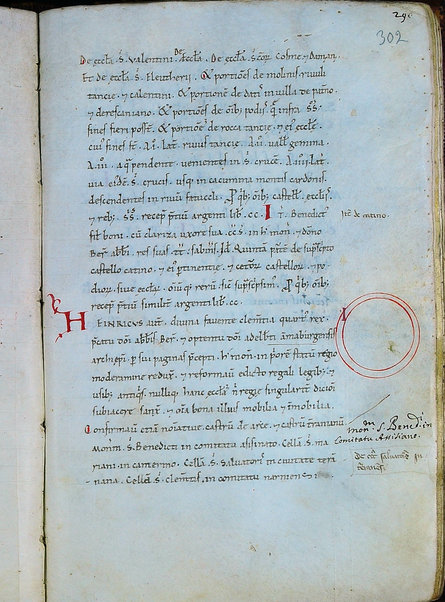 290
302
De eccl̄a. S̄. Valentini. De eccl̄a. De eccl̄a. s̄cor̄. Cosme & Damiani.
Et de eccl̄a. s̄. Eleutherii. & portiōes de molinis riuuli
tancie, & calentani. & portionē de
& derefcaniano. & portiōes de om̄ib; podiis q̄ infra s̄s̄.
fines fieri poss̄t. & portiōē de rocca tancie, & ei' eccl̄ie
cui' fines s̄t. A .i. lat̄. riuus tancie. A .ii. uall' gemma.
A .iii. aqua pendente uenientes in s̄. crucē. A .iiii. lat̄.
uia eidē s̄. crucis. usq; in cacumina montis cardonis.
descendentes in riuū fatuceli. P̄ q̄b; om̄ib; castell̄. eccl̄iis.
& reb; s̄s̄. recep̄ p̄tiū argenti lib̄. c c. It̄. Benedict'
filī boni. cū clariza uxore sua. c̄c̄s̄. in h̄ mon̄. & dōno
Ber̄. abb̄i. res suas. tt̄. sabiniī. Id. Quintā partē de sup̄scripto
castello catino, & ei' ptinentie, & ceteror̄ castellor̄, & po-
dior̄, siue eccl̄iar̄. oīūq; rerū sic sup̄sc̄pm̄. P̄ q̄b; om̄ib;
recep̄ p̄tiū similit̄ argenti lib̄. c c.
Itē de catino.
HEINRICUS aut̄. diuina fauente clem̄tia quart' rex.
p̄catu dōni abb̄is Ber̄. & optentu dōni adelb̄ti āmaburgensis
archiep̄i. p sui paginas p̄cepti. h̄ mon̄. in p̄ore statū regio
moderamine reduxit, & reformauit edicto regali legib; &
usib; antiq̄s. nulliq; hanc eccl̄ia nisi regie singularit̄ dicioni
subiacere sanxit, & oīa bona illius mobilia & īmobilia.
Confirmauit etiā noīatiue. castrū de arce. & castrū tranani.
Monrm̄. s̄. Benedicti in comitatu asisinato. Cellā s̄. ma
riani in camerino. Cellā s̄. Saluatoris in ciuitate terā
nana. Cellā s̄. clem̄tis, in comitatu narniensi.
mon.rm S. Benedi. in
Comitatu Assisiane.
De eccl̄. Saluatoris in